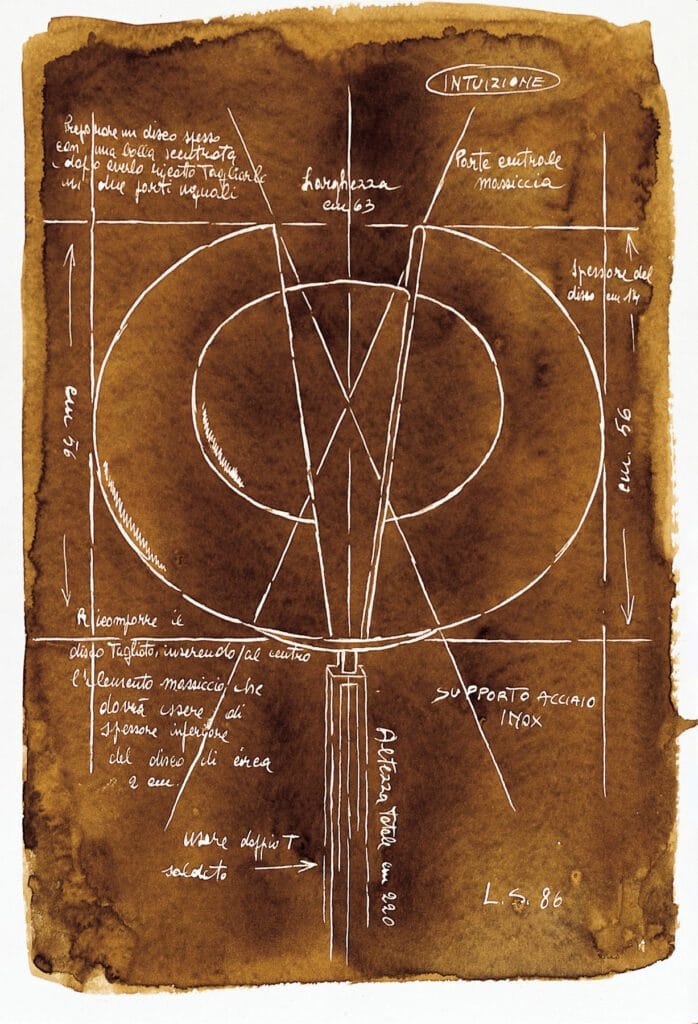 INTUIZIONE
Preparare un disco spesso
con una bolla scentrata
dopo averlo
in due parti uguali
Larghezza
cm 63
Parte centrale
massiccia
Spessore del
disco cm 14
cm 56
cm. 56
Ricomporre il
disco Tagliato, inserendo al centro
l'elemento massiccio, che
dovrà essere di
spessore inferiore
del disco di circa
2 cm.
SUPPORTO ACCIAIO
INOX
Altezza Totale cm 220
usare doppio T
saldato
L.S. 86